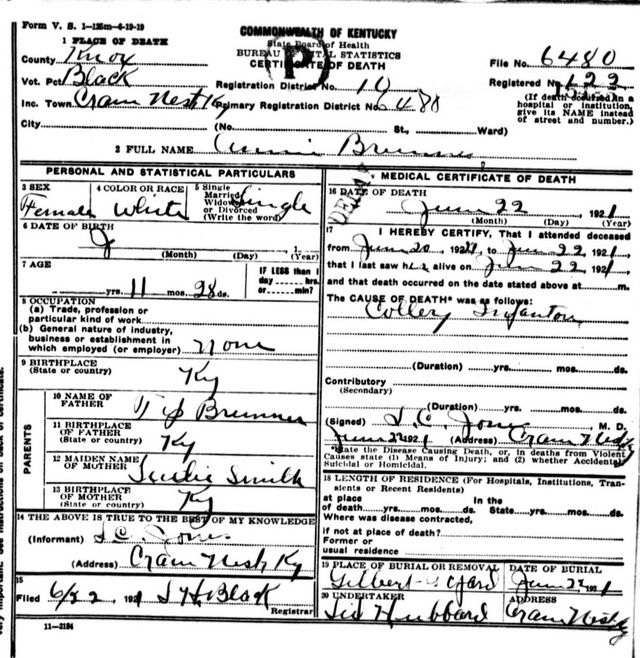 Form V. S. 1—125m—4-19-19
COMMONWEALTH OF KENTUCKY
State Board of Health
BUREAU OF VITAL STATISTICS
CERTIFICATE OF DEATH
P
1 PLACE OF DEATH
County Knox
Vot. Pct Black
Inc. Town Crain Nest Ky
City
Registration District No. 10
Primary Registration District No. 6480
(No. St., Ward)
File No. 6480
Registered No. 122
(If death occurred in a
hospital or institution,
give its NAME instead
of street and number.)
2 FULL NAME Annie Brunner
PERSONAL AND STATISTICAL PARTICULARS
3 SEX Female
4 COLOR OR RACE White
5 Single
Married
Widowed
or Divorced
(Write the word) Single
6 DATE OF BIRTH
(Month) (Day) (Year)
7 AGE
yrs. 11 mos. 28 ds.
IF LESS than 1
day hrs.
or min?
8 OCCUPATION
(a) Trade, profession or
particular kind of work
(b) General nature of industry,
business or establishment in
which employed (or employer) none
9 BIRTHPLACE
(State or country) Ky
PARENTS
10 NAME OF
FATHER Brunner
11 BIRTHPLACE
OF FATHER
(State or country) Ky
12 MAIDEN NAME
OF MOTHER Smith
13 BIRTHPLACE
OF MOTHER
(State or country) Ky
14 THE ABOVE IS TRUE TO THE BEST OF MY KNOWLEDGE
(Informant) Jones
(Address) Crain Nest Ky
15
Filed 6/22, 1921 Black
Registrar
11—3184
MEDICAL CERTIFICATE OF DEATH
16 DATE OF DEATH
June 22, 1921
(Month) (Day) (Year)
17 I HEREBY CERTIFY, That I attended deceased
from June 20, 1921, to June 22, 1921,
that I last saw h alive on June 22, 1921,
and that death occurred on the date stated above at m.
The CAUSE OF DEATH* was as follows:
(Duration) yrs. mos. ds.
Contributory
(Secondary)
(Duration) yrs. mos. ds.
(Signed) Jones, M. D.
June 22 1921 (Address) Crain Nest Ky
*State the Disease Causing Death, or, in deaths from Violent
Causes state (1) Means of Injury; and (2) whether Accidental,
Suicidal or Homicidal.
18 LENGTH OF RESIDENCE (For Hospitals, Institutions, Tran-
sients or Recent Residents)
at place In the
of death yrs. mos. ds. State yrs. mos. ds.
Where was disease contracted,
if not at place of death?
Former or
usual residence
19 PLACE OF BURIAL OR REMOVAL
Gilbert G Yard
DATE OF BURIAL
June 22 1921
20 UNDERTAKER
Hubbard
ADDRESS
Crain Nest Ky